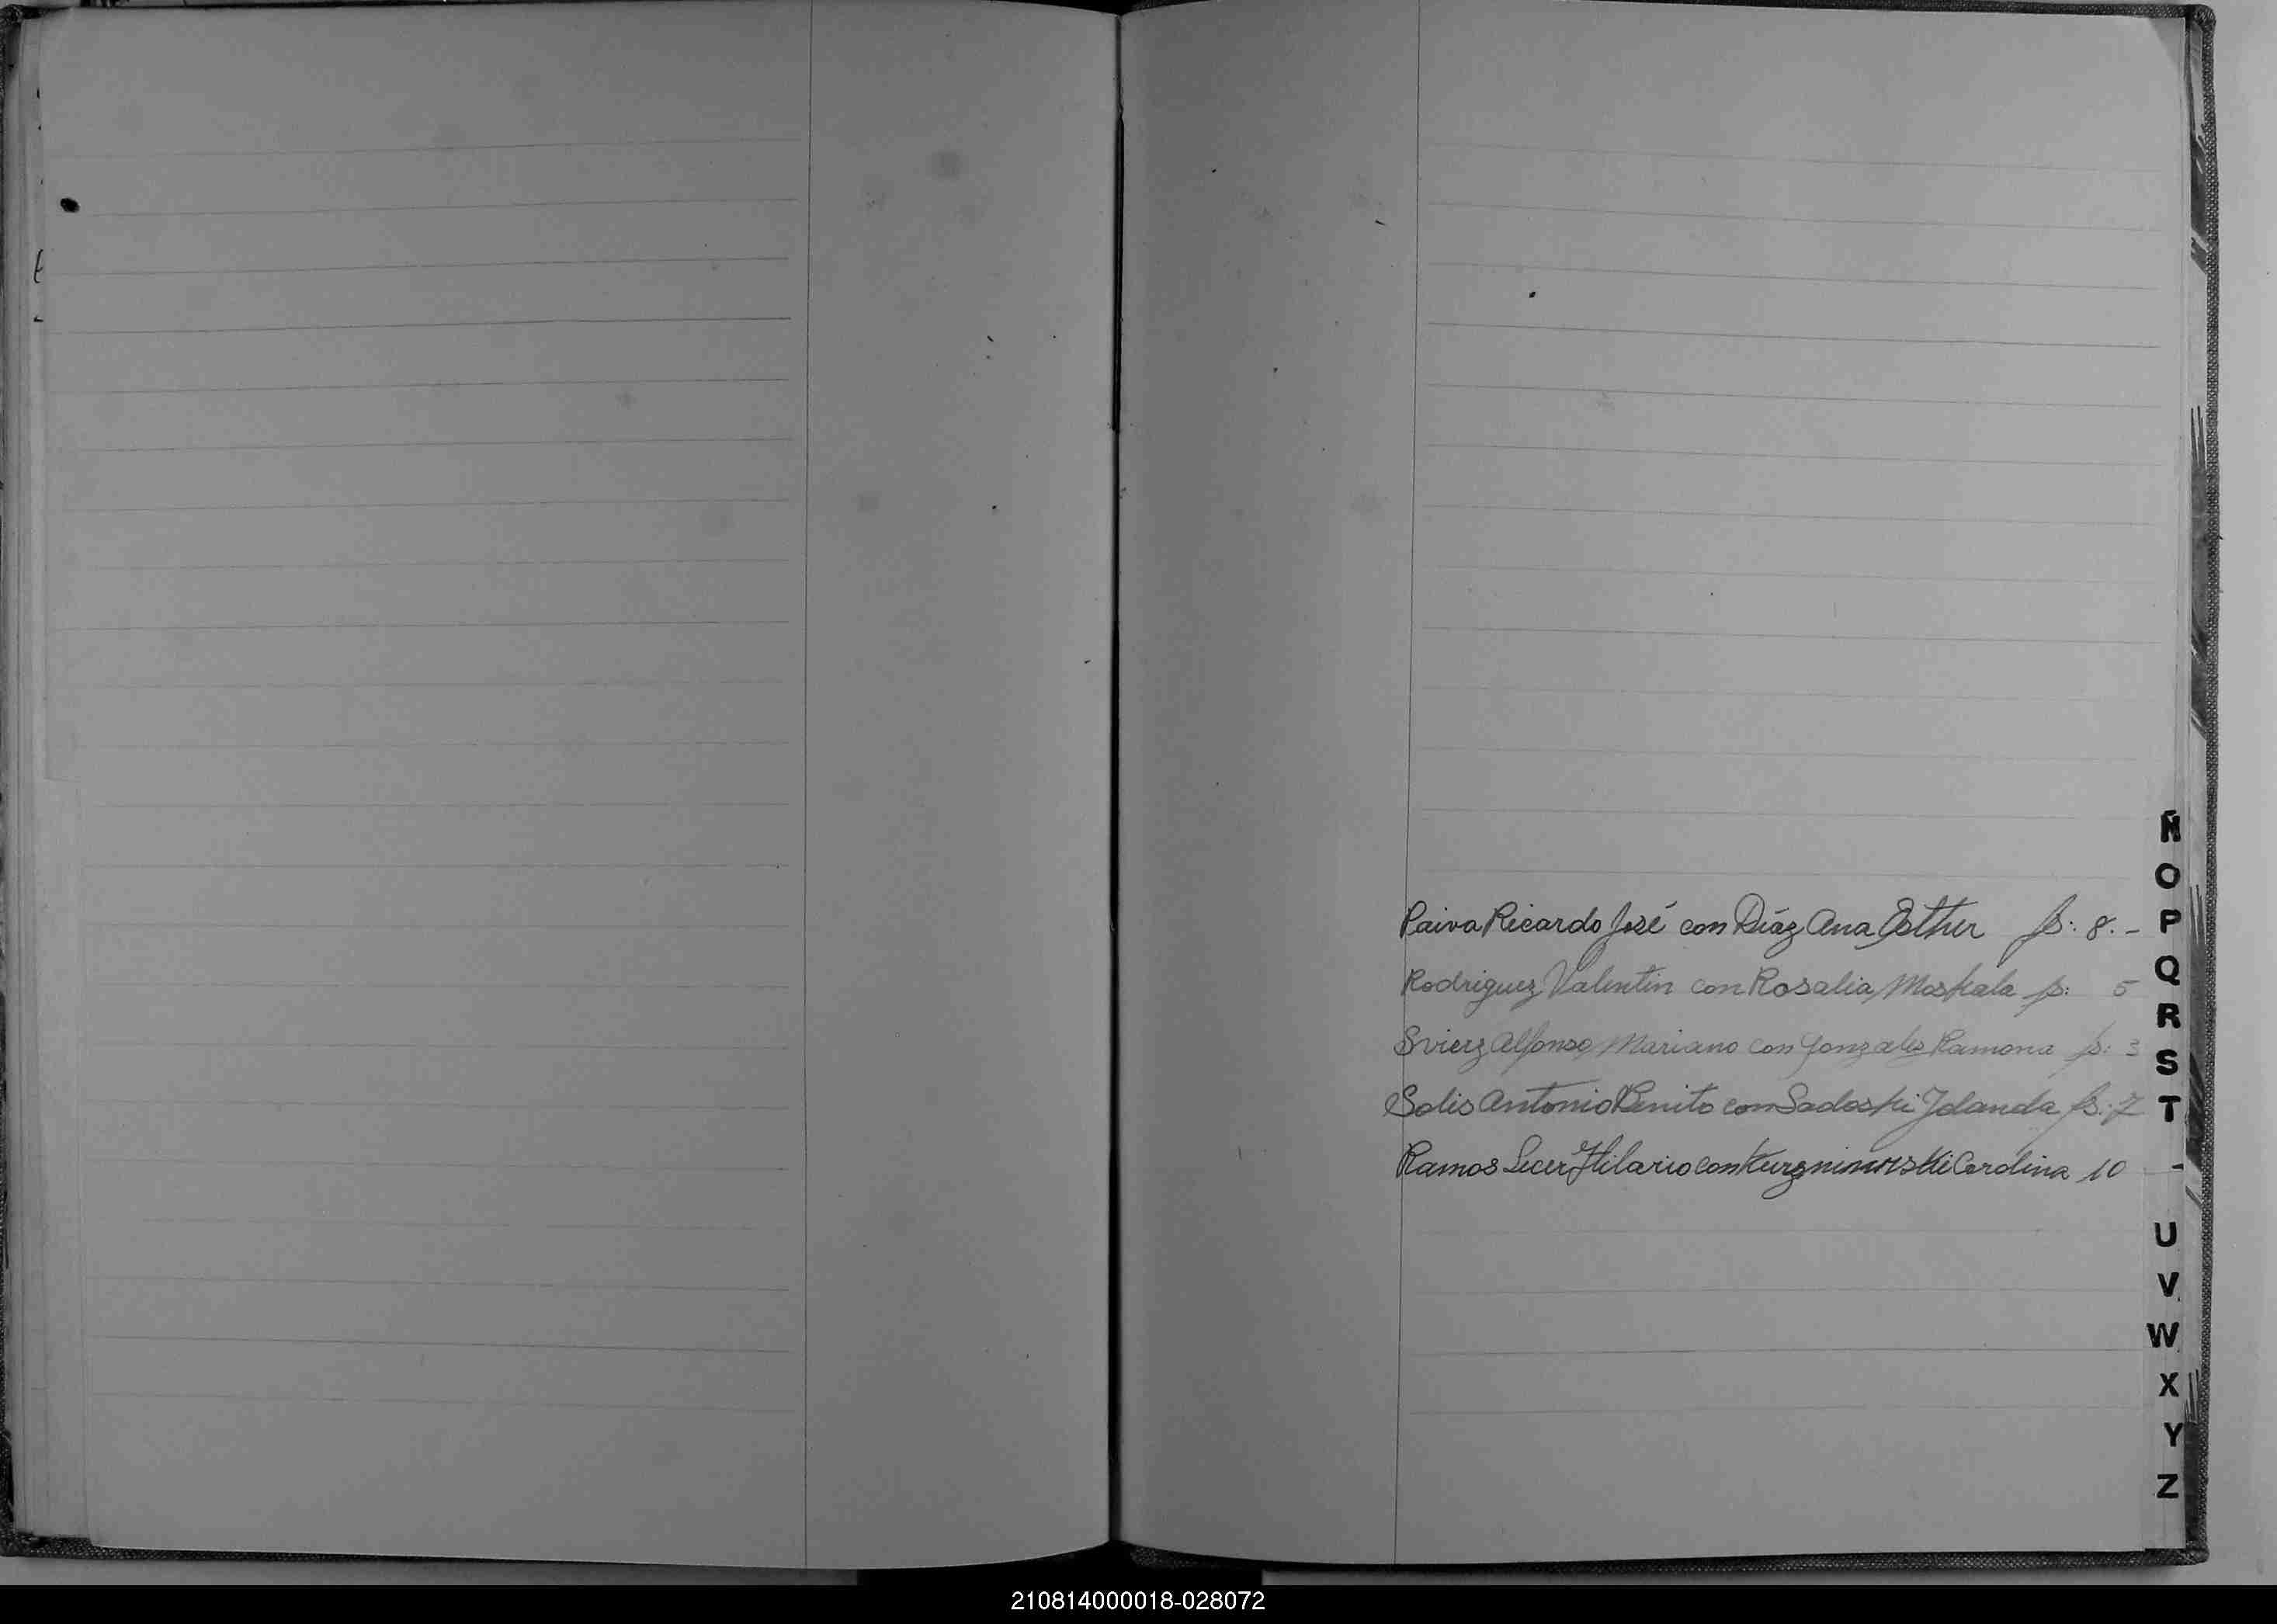 Paiva Ricardo José con Díaz Ana Esther p: 8.-
Rodriguez Valentin con Rosalia Moskala p: 5
Svierz Alfonso Mariano con Gonzales Ramona p: 3
Solis Antonio Benito con Sadoski Jolanda p: 7
Ramos Hilario con Carolina 10 -
Ñ
O
P
Q
R
S
T
U
V
W
X
Y
Z
210814000018-028072